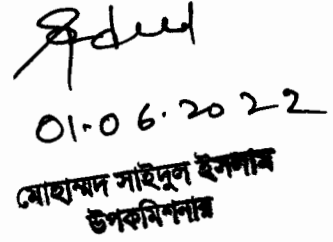 01.06.2022
মোহাম্মদ সাইদুল ইসলাম
উপকমিশনার